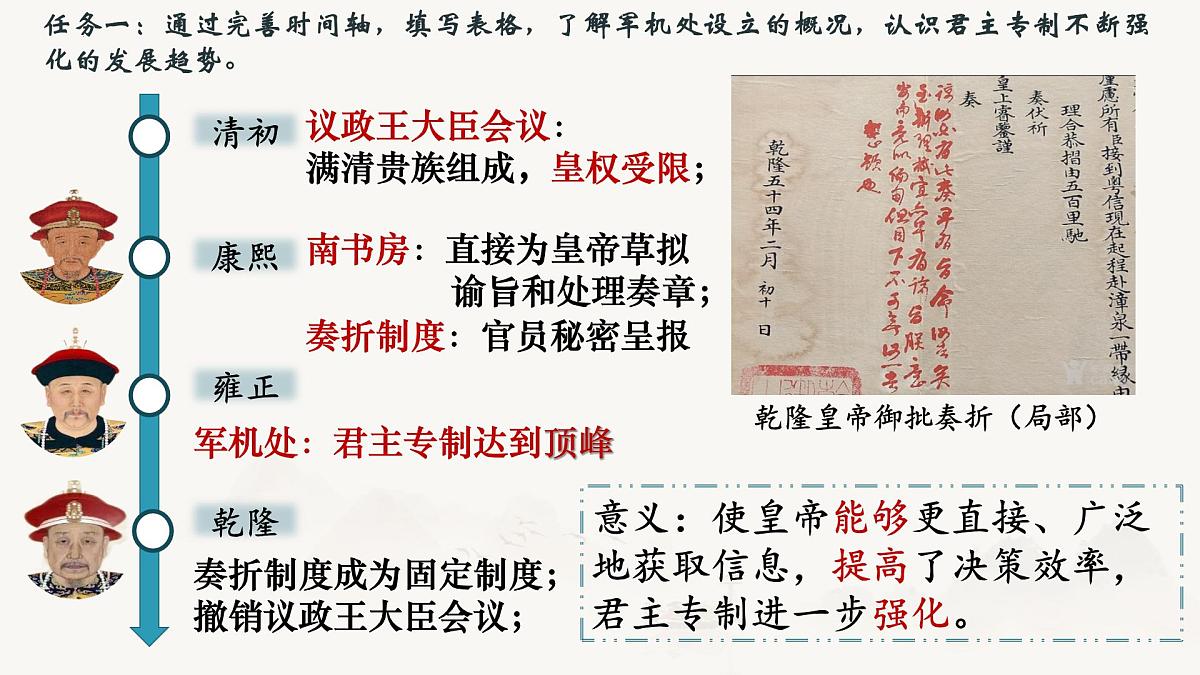 任务一：通过完善时间轴，填写表格，了解军机处设立的概况，认识君主专制不断强
化的发展趋势。
清初
议政王大臣会议：
满清贵族组成，皇权受限；
康熙
南书房：直接为皇帝草拟
谕旨和处理奏章；
奏折制度：官员秘密呈报
雍正
军机处：君主专制达到顶峰
乾隆
奏折制度成为固定制度；
撤销议政王大臣会议；
所有臣接到粤信现在起程赴漳泉一带缘由
理合恭摺由五百里馳
奏伏祈
皇上睿鑒謹
奏
乾隆五十四年二月初十日
乾隆皇帝御批奏折（局部）
意义：使皇帝能够更直接、广泛
地获取信息，提高了决策效率，
君主专制进一步强化。